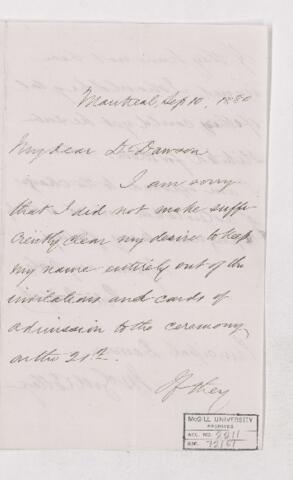 Montreal, Sep 10, 1880
My dear Dr Dawson
I am sorry
that I did not make suffi
ciently clear my desire to keep
my name entirely out of the
invitations and cards of
admission to the ceremony
on the 21st.
If they
McGILL UNIVERSITY
ARCHIVES
ACC. NO. 2211
REF.